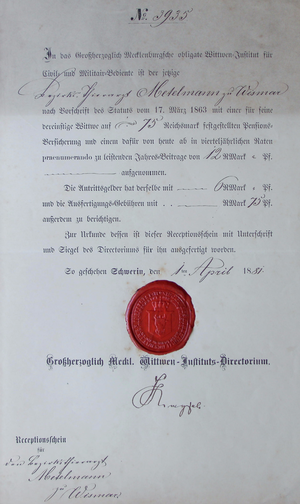 No. 3935
In das Großherzoglich Mecklenburgsche obligate Wittwen-Institut für
Civil- und Militair-Bediente ist der jetzige
Bezirks-Thierarzt Metelmann zu Wismar
nach Vorschrift des Statuts vom 17. März 1863 mit einer für seine
dereinstige Wittwe auf 75 Reichsmark festgestellten Pensions-
Versicherung und einem dafür von heute ab in vierteljährlichen Raten
praenumerando zu leistenden Jahres-Beitrage von 12 RMark Pf.
aufgenommen.
Die Antrittsgelder hat derselbe mit 6 RMark Pf.
und die Ausfertigungs-Gebühren mit RMark 75 Pf.
außerdem zu berichtigen.
Zur Urkunde dessen ist dieser Receptionsschein mit Unterschrift
und Siegel des Directoriums für ihn ausgefertigt worden.
So geschehen Schwerin, den 1ten April 1881.
Großherzoglich Meckl. Wittwen-Instituts-Directorium.
Receptionsschein
für
den Bezirksthierarzt
Metelmann
zu Wismar